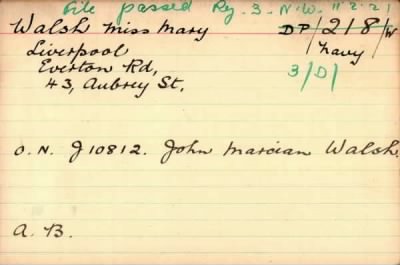 File passed Reg. 3. N.W. 11.2.21
Walsh Miss Mary DP/218/W
Liverpool Navy
Everton Rd, 3/D/
43, Aubrey St,
O.N. J10812. John Marcian Walsh
A.B.